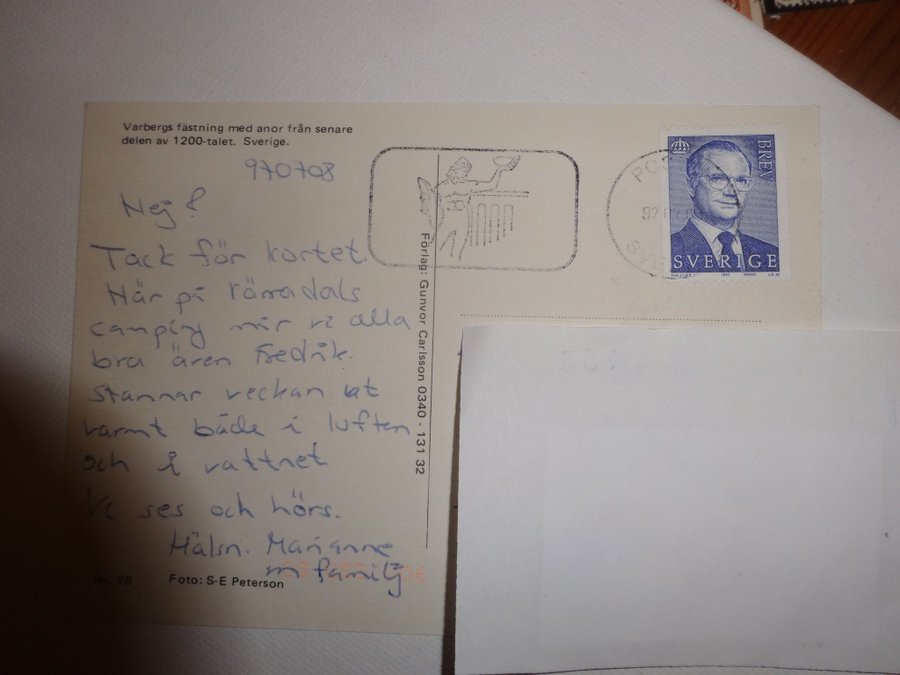 Varbergs fästning med anor från senare
delen av 1200-talet. Sverige.
970708
Hej!
Tack för kortet.
Här på Kärradals
camping mår vi alla
bra även Fredrik.
stannar veckan ut
varmt både i luften
och i vattnet
Vi ses och hörs.
Hälsn. Marianne
m familj
Nr. 78 Foto: S-E Peterson
Förlag: Gunvor Carlsson 0340 - 131 32
BREV
SVERIGE
1997